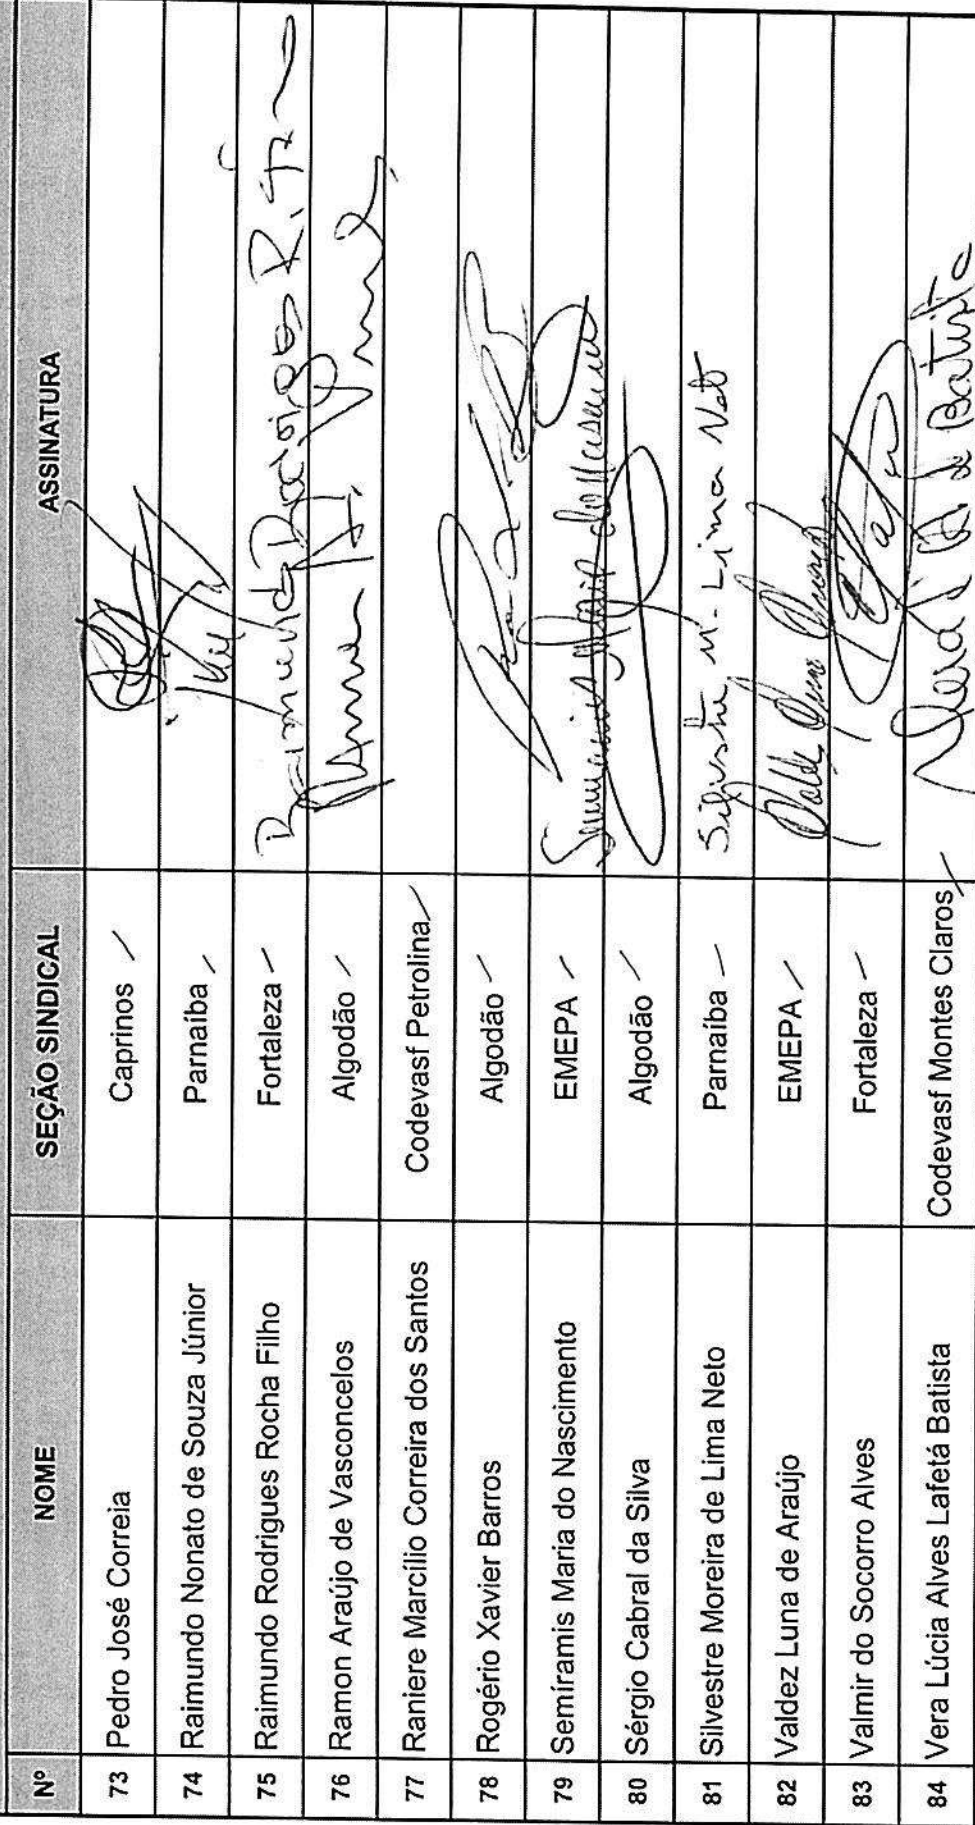 Nº NOME SEÇÃO SINDICAL ASSINATURA
73 Pedro José Correia Caprinos
74 Raimundo Nonato de Souza Júnior Parnaíba
75 Raimundo Rodrigues Rocha Filho Fortaleza
76 Ramon Araújo de Vasconcelos Algodão
77 Raniere Marcílio Correira dos Santos Codevasf Petrolina
78 Rogério Xavier Barros Algodão
79 Semíramis Maria do Nascimento EMEPA
80 Sérgio Cabral da Silva Algodão
81 Silvestre Moreira de Lima Neto Parnaíba Silvestre M. Lima Neto
82 Valdez Luna de Araújo EMEPA
83 Valmir do Socorro Alves Fortaleza
84 Vera Lúcia Alves Lafetá Batista Codevasf Montes Claros Batista